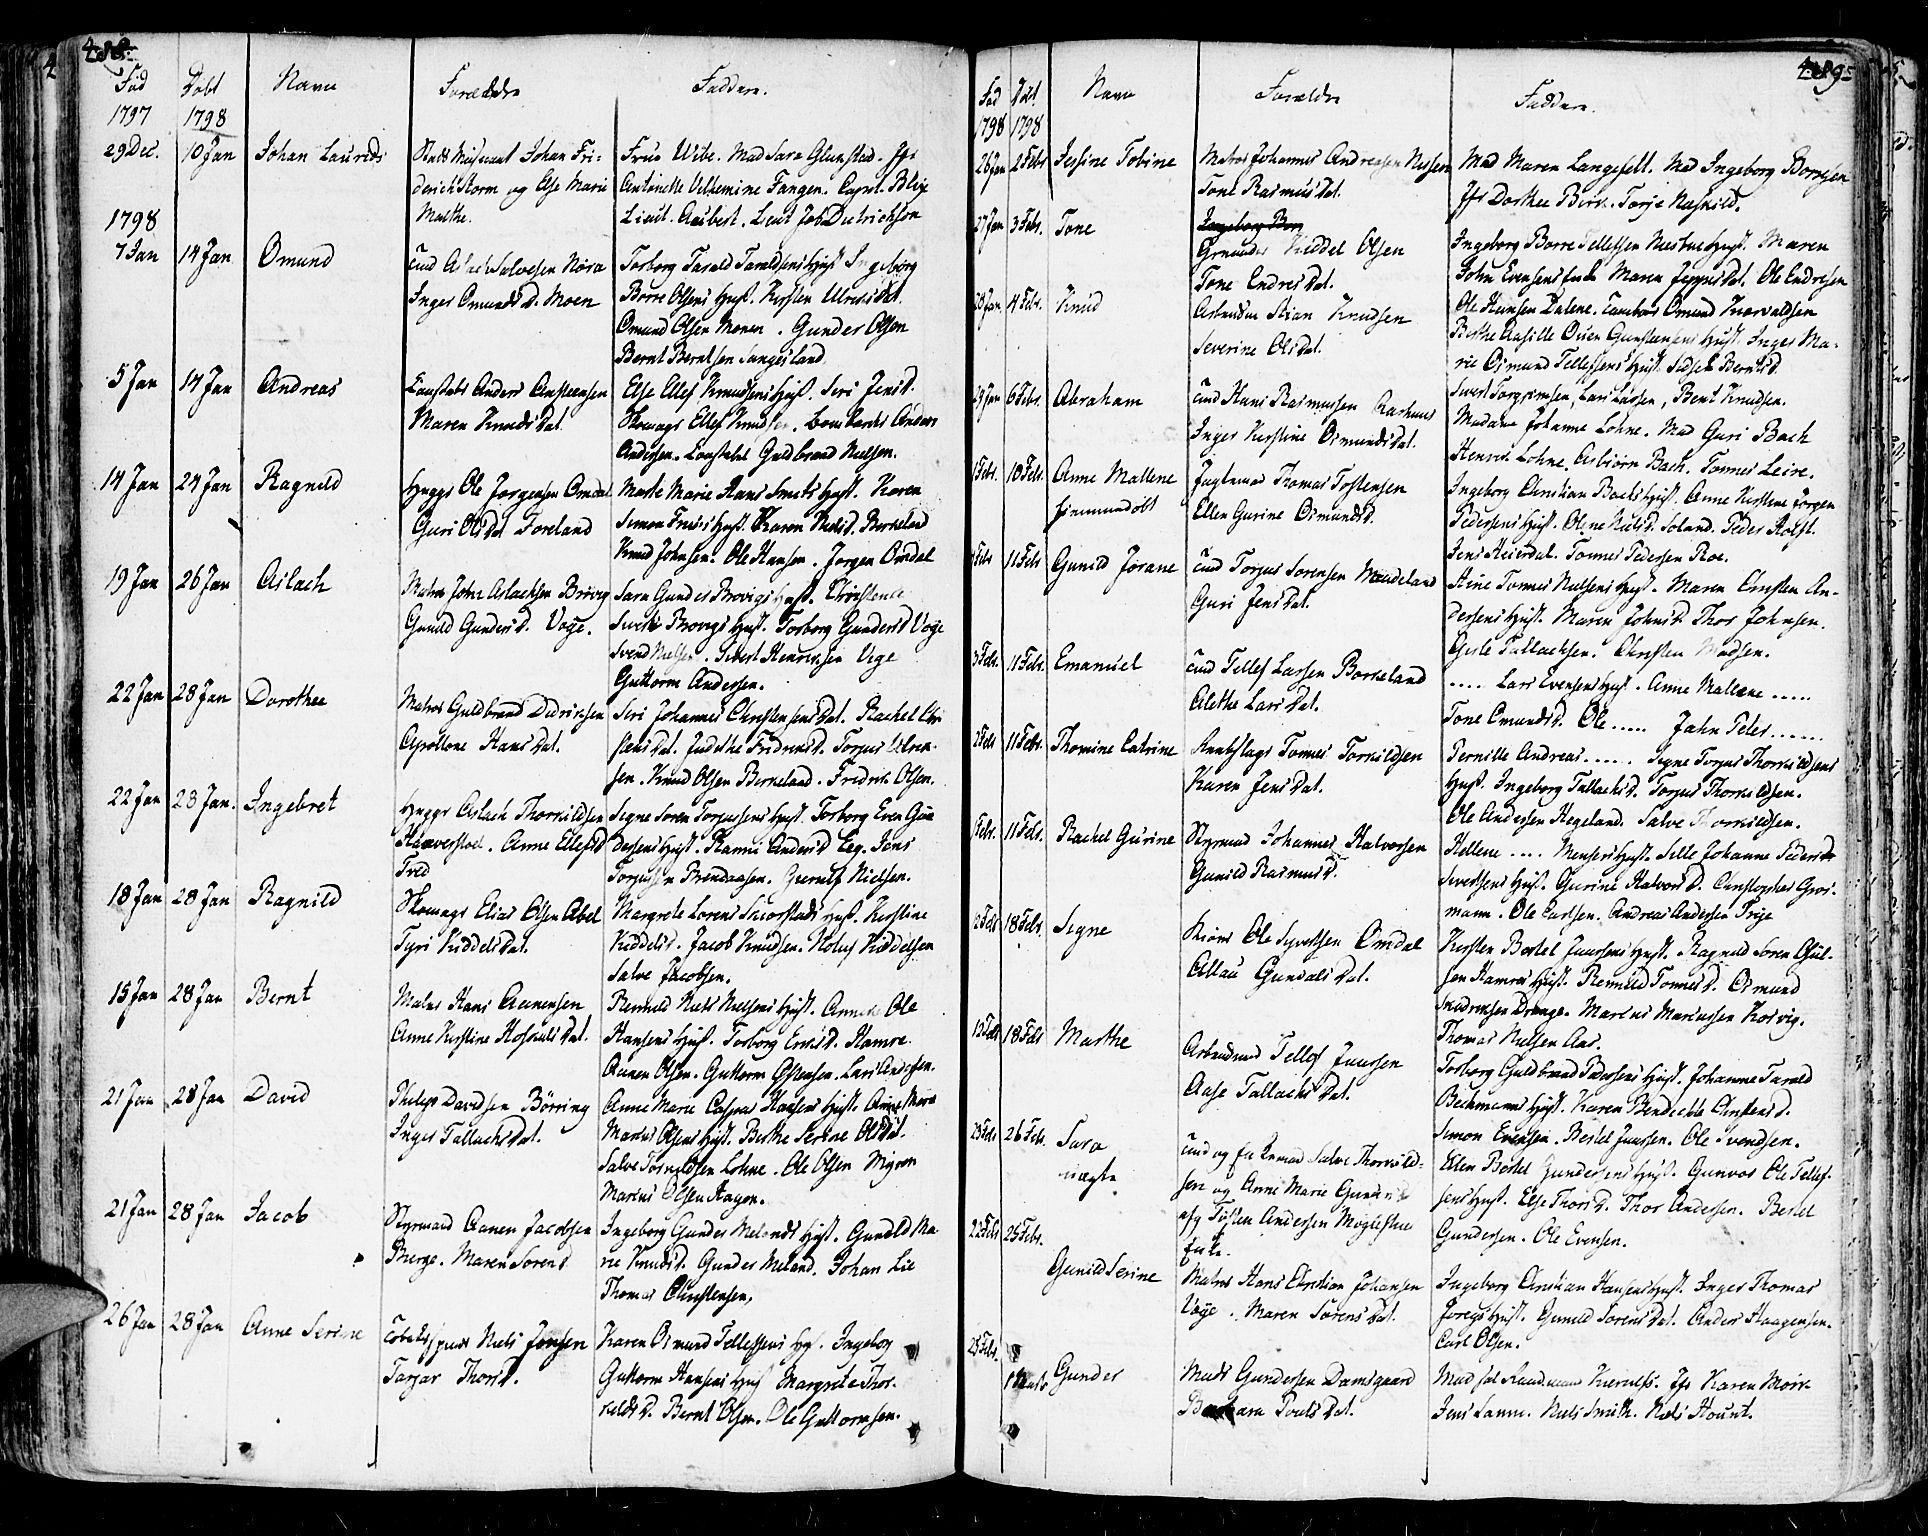 488.
Fód Dobt Navn Forældre Faddere.
1797 1798
29 Dec. 10 Jan Johan Laurids
Johan Fri-
derich Storm og Else Marie
Malthe.
Frue Wibe. Mad Sara Glunstad. Jfr
Antonette Velhemine Fangen. Capt. Blix
Lieut. Aubert. Lieut Joh Dietrichson
1798
7 Jan 14 Jan Omund
Aslach Salvesen Nora
Inger Omunds D. Moen
Torborg Tarald Taraldsens Hust Ingeborg
Borre Olsens Hust. Kirsten Ulrichs Dat.
Omund Olsen Monen. Gunder Olsen
Bernt Berntsen Sangesland
5 Jan 14 Jan Andreas
Anders Anstensen
Maren Knuds Dat.
Else Ellef Knudsens Hust. Siri Jens D.
Skomagr Ellef Knudsen. Anders
Andersen. Gulbrand Nielsen.
14 Jan 24 Jan Ragnild
Hyggr Ole Jorgensen Omdal
Guri Ols Dat Foreland
Marte Marie Hans Smets Hust. Karen
Simon Friis Hust. Karen Niels D. Birkeland
Knud Johnsen. Ole Hansen. Jorgen Omdal
19 Jan 26 Jan Aslach
Matros John Aslachsen Brovig
Gunild Gunders D. Voge.
Sara Gunder Brovigs Hust. Christence
Siverts Brovigs Hust. Torborg Gunders D Voge
Svend Nielsen. Sivert Henrichsen Vege
Guttorm Andersen.
22 Jan 28 Jan Dorothee
Matros Guldbrand Didrichsen
Apollone Hans Dat.
Siri Johannes Christensens Dat. Rachel Chri-
stens Dat. Judithe Fridrichs D. Torjus
sen. Knud Olsen Berkeland. Fredrik Olsen.
22 Jan 28 Jan. Ingebret
Hyggr Aslach Thorkildsen
Haaverstad. Anne Ellefs D
Tved
Signe Soren Torjussens Hust. Torborg Even Gun
dersens Hust. Ranni Anders D Eeg. Jens
Torjussen Brendaasen. Gunulf Nielsen.
18 Jan 28 Jan Ragnild
Skomagr Elias Olsen Abel
Tyri Kiddels Dat.
Margrete Lorens Skiorstads Hust. Kirstine
Kiddels D. Jacob Knudsen. Kiddelsen
Salve Jacobsen.
15 Jan 28 Jan Bernt
Matros Hans Aanensen
Anne Kirstine Hoskulds Dat.
Remild Niels Nielsens Hust. Anne Ole
Hansens Hust. Torborg Erichs D. Hamre.
Aanen Olsen. Guttorm Lars Andersen.
21 Jan 28 Jan David
Philip Davidsen Börring
Inger Tallachs Dat.
Anne Marie Caspar Hansens Hust. Anne Maria
Marius Olsens Hust. Berthe Serine Ols Dat.
Salve Torkildsen Lohne. Ole Olsen
Marius Olsen Hagen.
21 Jan 28 Jan Jacob
Styrmand Aanen Jacobsen
Maren Sorens D
Ingeborg Gunder Melands Hust. Gunild Ma-
rie Knuds D. Gunder Meland. Johan Lie
Thomas Christensen,
26 Jan 28 Jan Anne Serine
Niels Jensen
Targar Thors D.
Karen Osmund Tellefsens H. Ingeborg
Guttorm Hansens Hust Margrete Thor-
kilds D. Bernt Olsen. Ole Guttormsen.
489
Fód Dobt Navn Forældre Faddere.
1798 1798
26 Jan 2 Febr Jessine Tobine
Matros Johannes Andreasen Nessen
Tone Rasmus Dat.
Mad Maren Langefelt. Mad Ingeborg Borresen
Jfr Dorthee Birk. Torje Naskild.
27 Jan 3 Febr. Tone
Ingeborg
Kiddel Olsen
Tone Endres Dat.
Ingeborg Borre Tellefsen Hust. Maren
John Evensens Enke Maren Jeppes Dat. Ole Endresen
28 Jan 4 Febr. Knud
Stian Knudsen
Severine Ols Dat.
Ole Hansen Dalene. Tambour Omund Knervaldsen
Berthe Aasille Osuer Gunstensens Hust. Inger Ma-
rie Osmund Tellefsens Hust. Sidsel Bernts D.
Sivert Torgrimsen, Lars Larsen, Bent Knudsen.
29 Jan 6 Febr. Abraham
Hans Rasmussen Aarhuus
Inger Kirstine Osmunds Dat.
Madame Johanne Lohne. Mad Guri Bach
Henrik Lohne. Asbiörn Bach. Tonnes Leire.
1 Febr. 10 Febr. Anne Mallene
hiemmedöbt
Thomas Tostensen
Ellen Gurine Osmunds D.
Ingeborg Christian Bachs Hust. Anne Kirstine Jorgen
Pedersens Hust. Olene Niels D. Foland. Peder Holst.
Jens Heierdal. Tonnes Pedersen Roe.
Febr 11 Febr Gunild Jorane
Torjus Sorensen Mandeland
Guri Jens Dat.
Stine Tonnes Nielsens Hust. Maren Christen An-
dersens Hust. Maren Johns D. Thor Johnsen.
Gusle Tallachsen. Christen Madsen.
3 Febr. 11 Febr. Emanuel
Tellef Larsen Borkeland
Alethe Lars Dat.
..... Lars Evensens Hust. Anne Mallene .....
Tone Omunds D. Ole ..... Jahn Peter ......
2 Febr 11 Febr. Thomine Catrine
Tonnes Torkildsen
Karen Jens Dat.
Pernille Andreas ...... Signe Torjus Thorkildsens
Hust. Ingeborg Tallachs D. Torjus Thorkildsen.
Ole Andersen Hegeland. Salve Thorkildsen.
Febr. 11 Febr. Rachel Gurine
Styrmand Johannes Halvorsen
Gunild Rasmus D.
Hellene .... Monsens Hust. Sille Johanne Peder
Sivertsens Hust. Gurine Halvors D. Christopher Gros-
mann. Ole Carlsen. Andreas Andersen
12 Febr 18 Febr. Signe
Ole Syvertsen Omdal
Allau Gunvals Dat.
Kirsten Bertel Juursens Hust. Ragnild Soren Chri-
sen Hamres Hust. Remild Tonnes D. Osmund
Drange. Marcus Marcussen Korsvig.
Thomas Nielsen Aas.
13 Febr 18 Febr Marthe
Arbeidsmd Tellef Juursen
Aase Tallachs Dat.
Torborg Guldbrand Pedersens Hust. Johanne Tarald
Bechmans Hust. Karen Bendechte Christens D.
Simon Evensen. Bertel Juursen. Ole Svendsen.
25 Febr 26 Feb. Sara
uægte
og Enkemand Salve Thorkild-
sen og Anne Marie Gunders D
afg Tosten Andersen
Enke.
Ellen Bertel Gundersens Hust. Gunvor Ole Tellef-
sens Hust. Else Thors D. Thor Andersen. Bertel
Gundersen. Ole Evensen.
22 Febr 25 Febr. Gunild Serine
Matros Hans Christian Johansen
Voge. Maren Sorens Dat.
Ingeborg Christian Hansens Hust. Inger Thomas
Hust. Gunild Sorens Dat. Anders Haagensen.
Carl Olsen.
25 Febr. 1 Marts Gunder
Mads Gundersen Damsgaard
Barbara Povels Dat.
Mad sal Raadmand Kierulfs. Jfr Karen Mörk
Jens Lanne. Niels Smith. Niels Hount.